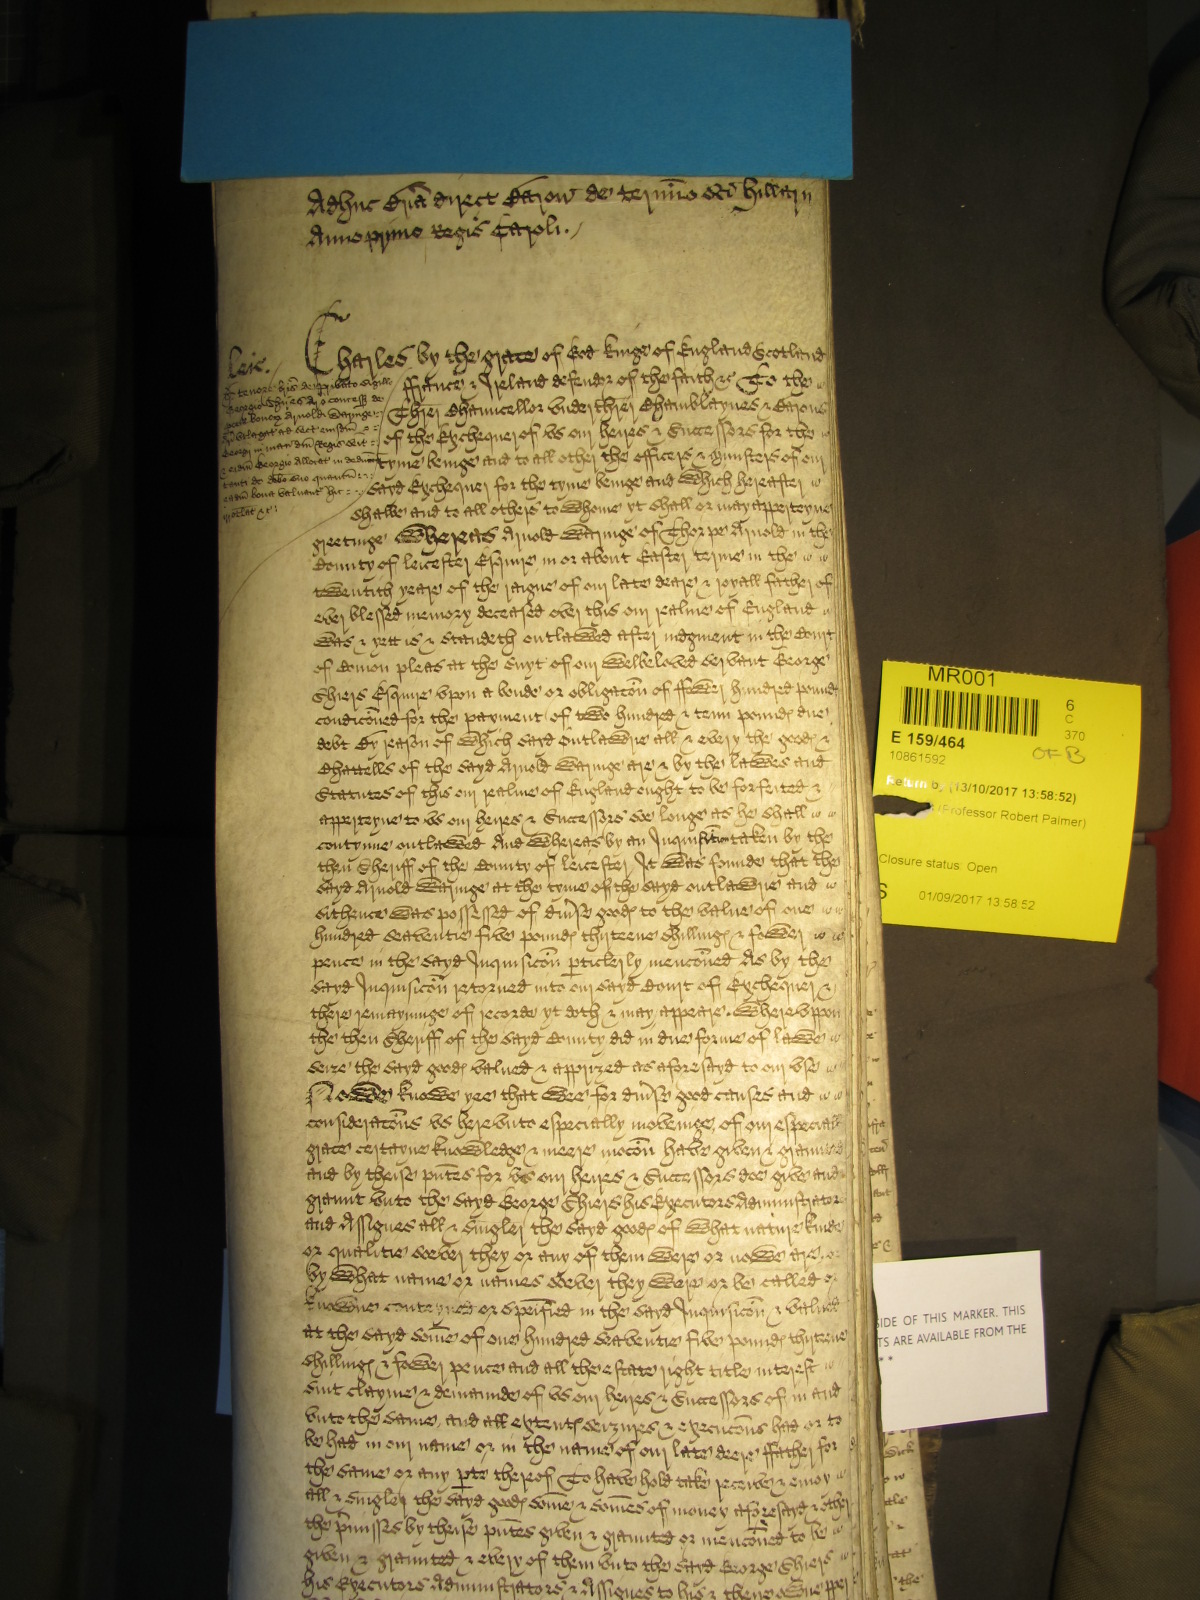 Adhuc Bria direct Baron de termino Sci Hillarij
Anno primo Regis Caroli.
Leic.
Charles by the grace of God Kinge of England Scotland
ffrance & Ireland defendor of the faith &c To the
Thrēr Chauncellor underthrēr Chamblaynes & Barons
of the Exchequer of us our heires & Successors for the
tyme beinge and to all other the officers & ministers of our
sayd Exchequer for the tyme beinge and which hereafter
shalbe and to all others to whome yt shall or may apperteyne
greetinge Whereas Arnold Waringe of Thorpe Arnold in the
County of Leicester Esquire in or about Easter terme in the
twentith yeare of the raigne of our late deare & royall father of
ever blessed memory deceased over this our realme of England
was & yett is & standeth outlawed after iudgment in the Court
of Comon pleas at the suyt of our welbeloved servant George
Shiers Esquire upon a bonde or obligacōn of fower hundred pound
condicōned for the payment of two hundred & tenn pounds due
debt By reason of which sayd outlawrie all & every the goods &
Chattells of the sayd Arnold Waringe are & by the lawes and
Statutes of this our realme of England ought to be forfeited &
apperteyne to us our heires & Successors soe longe as he shall
contynue outlawed And whereas by an Inquisicōn taken by the
then Sheriff of the County of Leicester It was founde that the
sayd Arnold Waringe at the tyme of the sayd outlawrie and
sithence was possessed of divse goods to the value of one
hundred seaventie five pounds thirteene shillings & fower
pence in the sayd Inquisicōn pticlerly mencōned As by the
sayd Inquisicōn retorned into our sayd Court of Exchequer &
there remayninge of recorde yt doth & may appeare. Whereuppon
the then Sheriff of the sayd County did in due forme of lawe
seize the sayd goods valued & apprized as aforesayd to our use
Nowe knowe yee that wee for divse good causes and
consideracōns us hereunto especially movinge, of our especiall
grace certayne knowledge & meere mocōn have given & graunted
and by theise pn̄tes for us our heires & Successors doe give and
graunt unto the sayd George Shiers his Executors Administrators
and Assignes all & singler the sayd goods of what nature kinde
or qualitie soever they or any of them were or nowe are or
by what name or names soever they were or be called or
knowne conteyned or specified in the sayd Inquisicōn & valued
at the sayd some of one hundred seaventie five pounds thirteene
shillings & fower pence and all the estate right title interest
suit clayme & demaunde of us our heires & Successors of in and
unto the same, and all extents seizures & execucōns had or to
be had in our name or in the name of our late deere ffather for
the same or any pte thereof To have hold take receive & enioy
all & singler the sayd goods some & somes of money aforesayd & other
the pmisses by theise pn̄tes given & graunted or mencōned to be
given & graunted & every of them unto the sayd George Shiers
his Executors Administrators & Assignes to his & theire owne pper
MR001
6
C
370
E 159/464
OF B
10861592
Return by (13/10/2017 13:58:52)
(Professor Robert Palmer)
Closure status: Open
S
01/09/2017 13:58:52
SIDE OF THIS MARKER. THIS
TS ARE AVAILABLE FROM THE
**